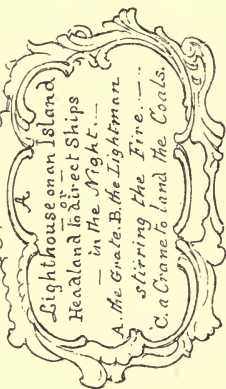 A
Lighthouse on an Island
— or —
Headland to direct Ships
— in the Night. —
A. the Grate. B. the Lightman
stirring the Fire. —
C. a Crane to land the Coals.